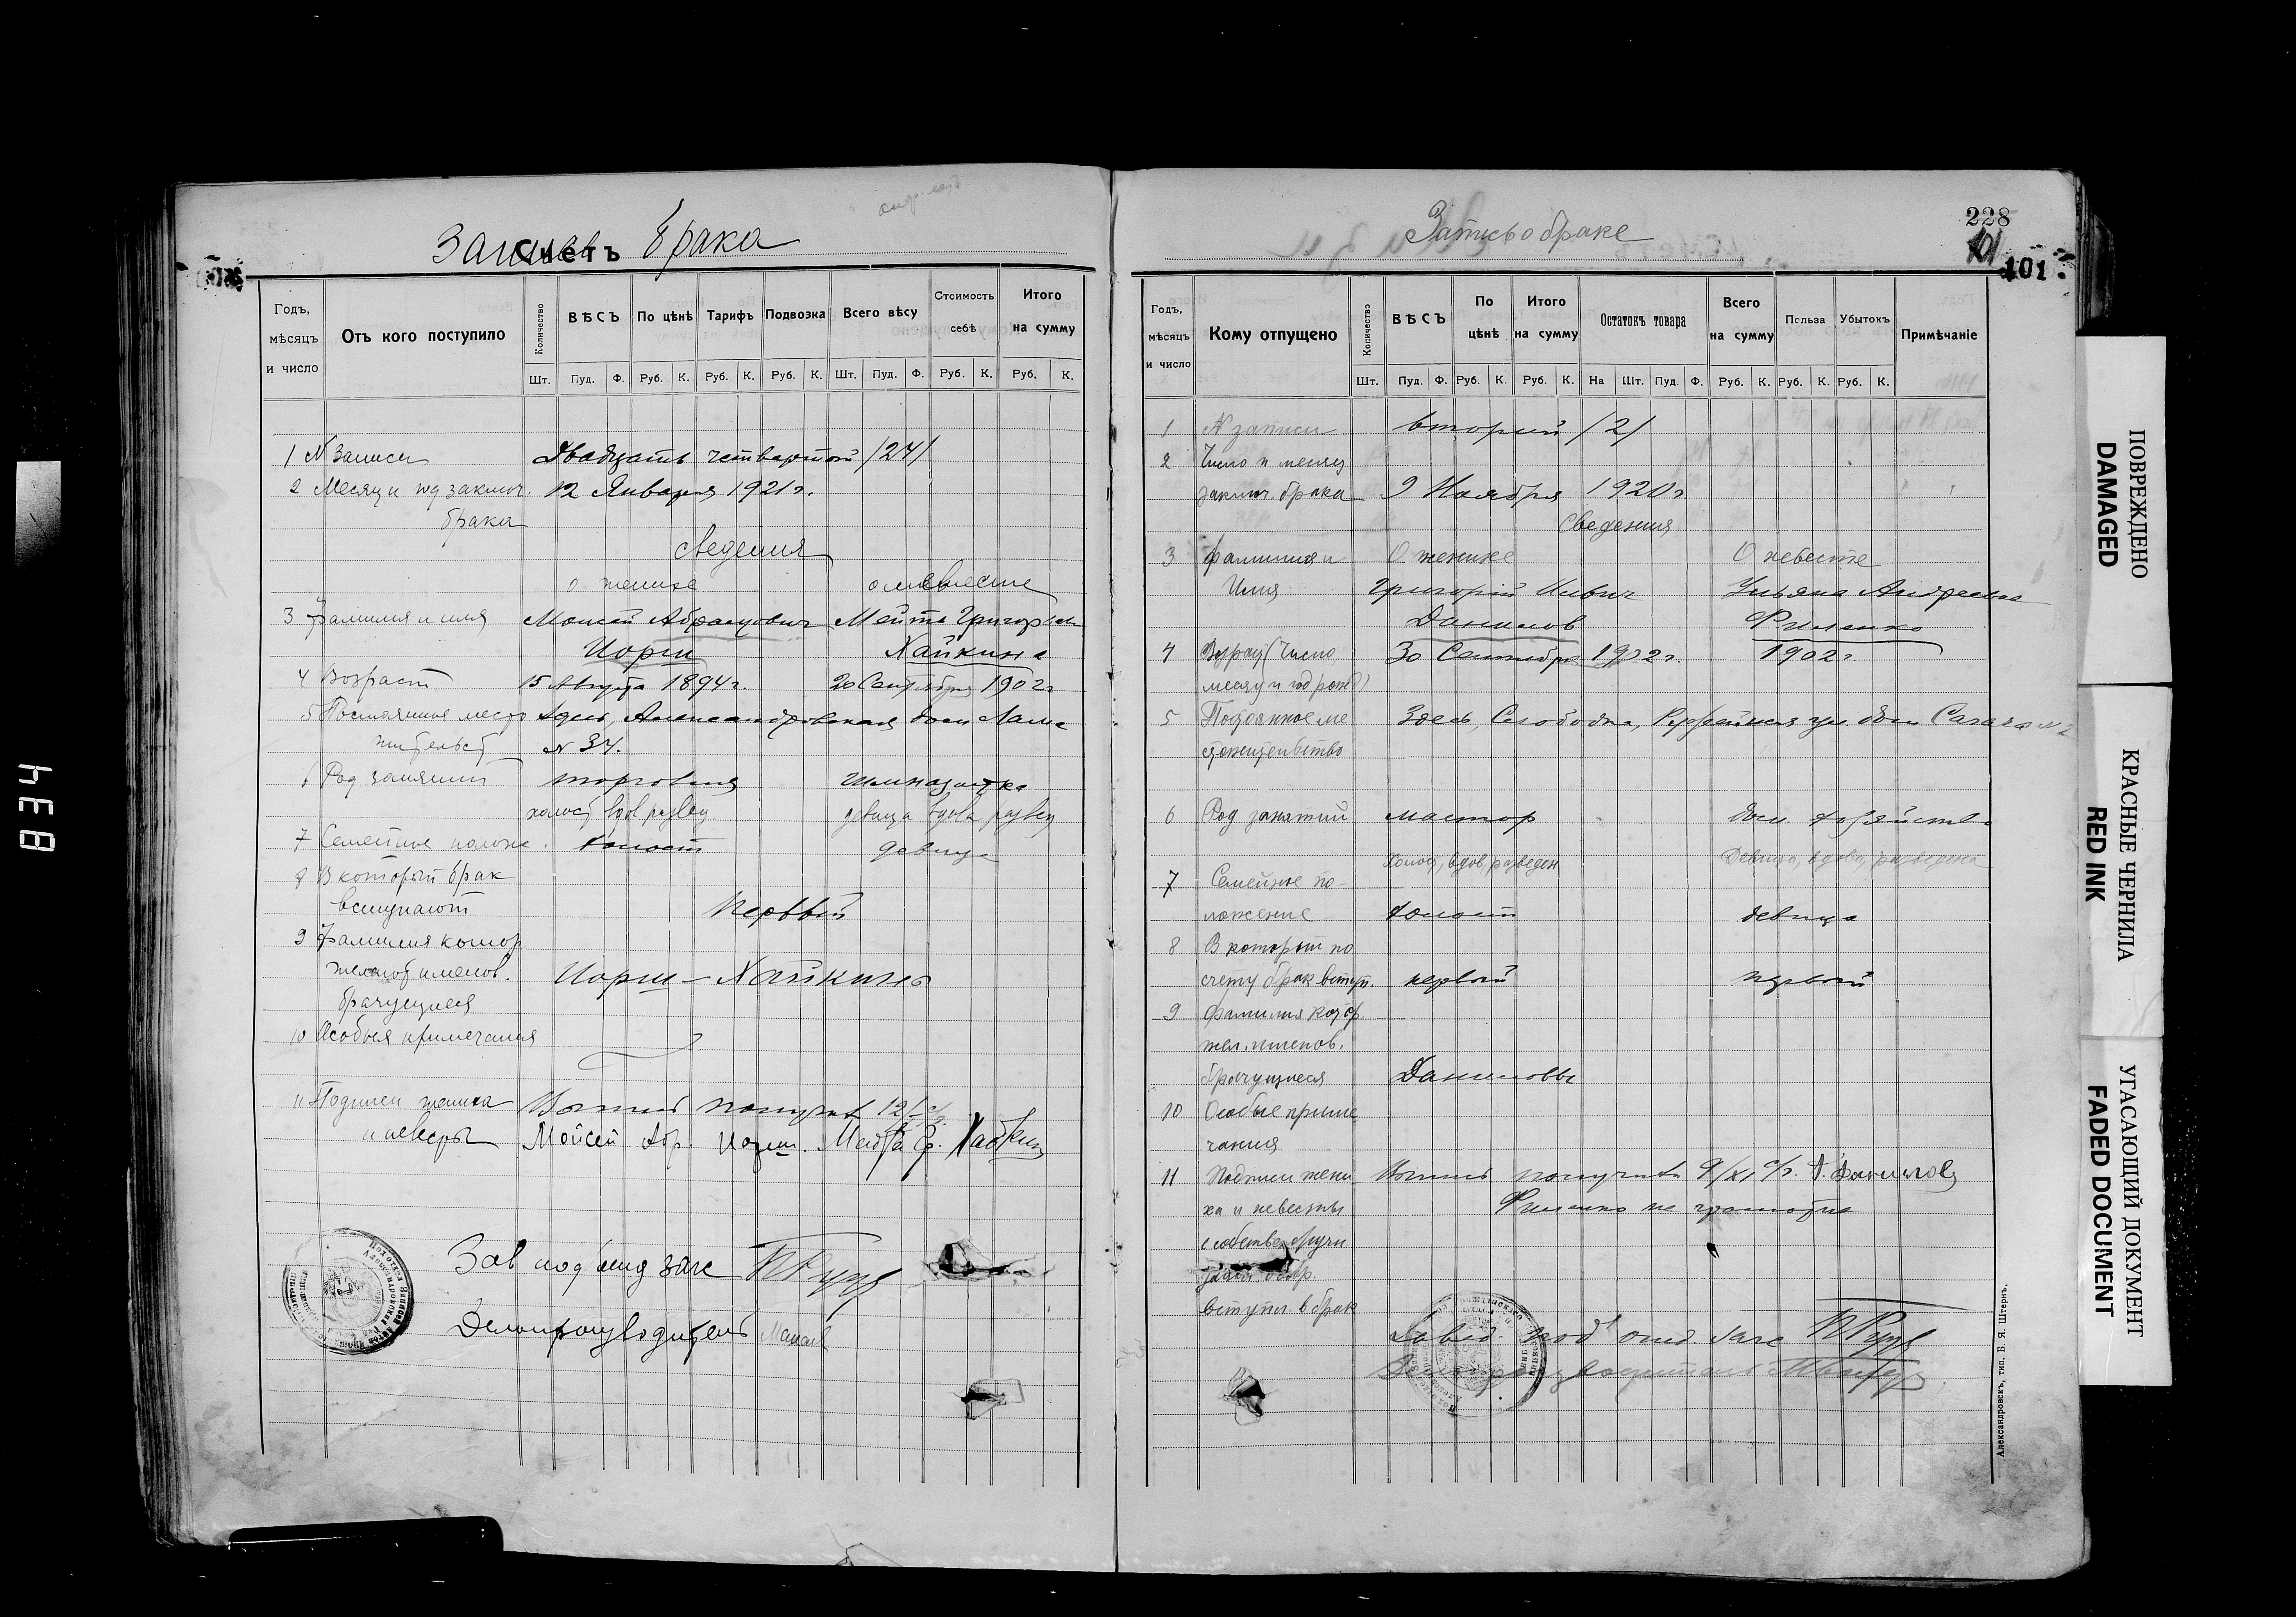 Запись брака
Счетъ
Годъ, мѣсяцъ и число
Отъ кого поступило
Количество
ВѢСЪ
По цѣнѣ
Тарифъ
Подвозка
Всего вѣсу
Стоимость себѣ
Итого на сумму
Шт. Пуд. Ф. Руб. К. Руб. К. Руб. К. Шт. Пуд. Ф. Руб. К. Руб. К.
1 N Записи Двадцать четвертой /24/
2 Месяц и год заключ. 12 Января 1921 г.
брака
сведения
о женихе о невесте
3 Фамилия и имя Моисей Абрамович Мейта Григорьев
Иорш Хайкина
4 Возраст 15 Августа 1894 г. 20 Сентября 1902 г
5 Постоянное место Здесь, Александровская дом
жительст N 34.
6 Род занятий торговля Гимназистка
холост вдов развед девица вдова развед
7 Семейное полож. Холост девица
8 В который брак
вступают Первый
9 Фамилия котор
желают именов. Иорш - Хайкины
брачущиеся
10 Особыя примечания
11 Подписи жениха Выпись получил 12/I с/г.
и невесты Мойсей Абр. Иорш. Г. Хайкина
Зав подотд загс
Делопроизводитель
Запись о браке
228
101
101
Годъ, мѣсяцъ и число
Кому отпущено
Количество
ВѢСЪ
По цѣнѣ
Итого на сумму
Остатокъ товара
Всего на сумму
Польза
Убытокъ
Примѣчаніе
Шт. Пуд. Ф. Руб. К. Руб. К. На Шт. Пуд. Ф. Руб. К. Руб. К. Руб. К.
1 N записи второй /2/
2 Число и месяц
заключ. брака 9 Ноября 1920 г
Сведения
3 Фамилия и О женихе О невесте
Имя Григорій Ульяна Андреевна
Данилов
4 Возраст (Число 30 Сентября 1902 г. 1902 г
месяц и год рожд)
5 Постоянное ме Здесь, Слободка, ул дом
стожительство
6 Род занятий маляр дом хозяйство
Холост, вдов, разведен Девица, вдова, разведена
7 Семейное по-
ложение Холост девица
8 В который по
счету брак вступ. первый первый
9 Фамилия котор
жел. именов.
брачущиеся Даниловы
10 Особые приме
чания
11 Подписи жени Выпись получил 9/XI с/г. Данилов
ха и невесты не грамотна
вступл. в брак
Завед. подотд. загс
Делопроизводитель
Александровскъ, тип. Б. Я. Штернъ.
ПОВРЕЖДЕНО
DAMAGED
КРАСНЫЕ ЧЕРНИЛА
RED INK
УГАСАЮЩИЙ ДОКУМЕНТ
FADED DOCUMENT
834